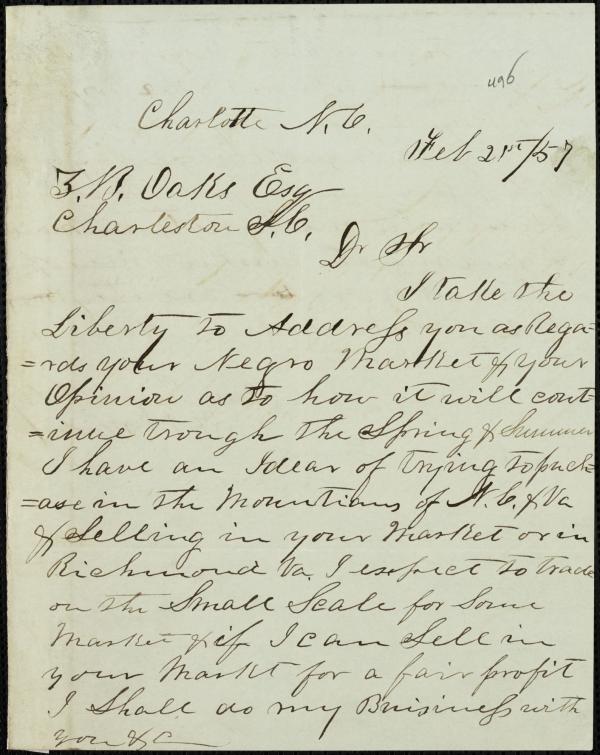 496
Charlotte N. C.
Feb 21st/57
Z. B. Oaks Esq
Charleston S. C.
Dr Sir
I take the
Liberty to Address you as Rega=
=rds your Negro Market & your
Opinion as to how it will cont=
=inue trough the Spring & Summer
I have an Idear of trying to puch=
=ase in the Mountians of N. C. & Va
& Selling in your Market or in
Richmond Va. I expect to trade
on the Small Scale for Some
Market & if I can Sell in
your Markt for a fair profit
I Shall do my Buisiness with
you &c